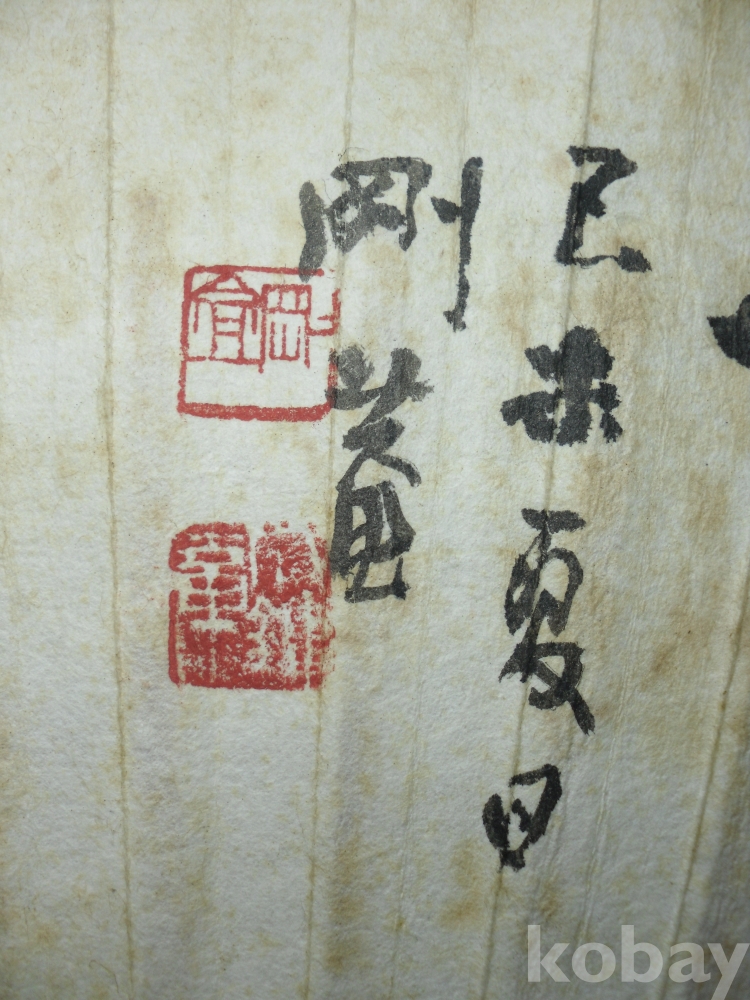 己未夏日
剛菴
kobay